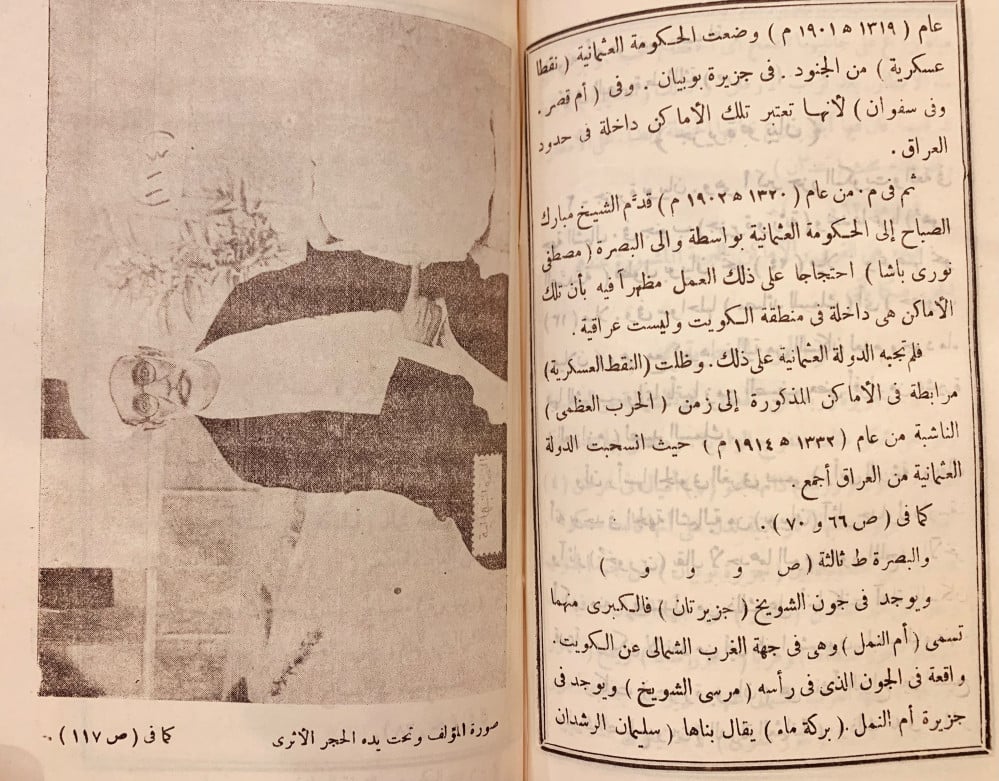 عام ( ١٣١٩ ﻫ ١٩٠١ م ) وضعت الحكومة العثمانية ( نقطا
عسكرية ) من الجنود . فى جزيرة بوبيان . وفى ( أم قصر .
وفى سفوان ) لأنها تعتبر تلك الأماكن داخلة فى حدود
العراق .
ثم فى م٠ من عام ( ١٣٢٠ ﻫ ١٩٠٢ م ) قدَّم الشيخ مبارك
الصباح إلى الحكومة العثمانية بواسطة والى البصرة ( مصطفى
نورى باشا ) احتجاجا على ذلك العمل مظهراً فيه بأن تلك
الأماكن هى داخلة فى منطقة الكويت وليست عراقية .
فلم تجبه الدولة العثمانية على ذلك . وظلت ( النقط العسكرية )
مرابطة فى الأماكن المذكورة إلى زمن ( الحرب العظمى )
الناشبة من عام ( ١٣٣٢ ﻫ ١٩١٤ م ) حيث انسحبت الدولة
العثمانية من العراق أجمع .
كما فى ( ص ٦٦ و ٧٠ ) .
والبصرة ط ثالثة ( ص و و و )
ويوجد فى جون الشويخ ( جزيرتان ) فالكبرى منهما
تسمى ( أم النمل ) وهى فى جهة الغرب الشمالى عن الكويت .
واقعة فى الجون الذى فى رأسه ( مرسى الشويخ ) ويوجد فى
جزيرة أم النمل . ( بركة ماء ) يقال بناها ( سليمان الرشدان
صورة المؤلف وتحت يده الحجر الأثرى كما فى ( ص ١١٧ ) ..